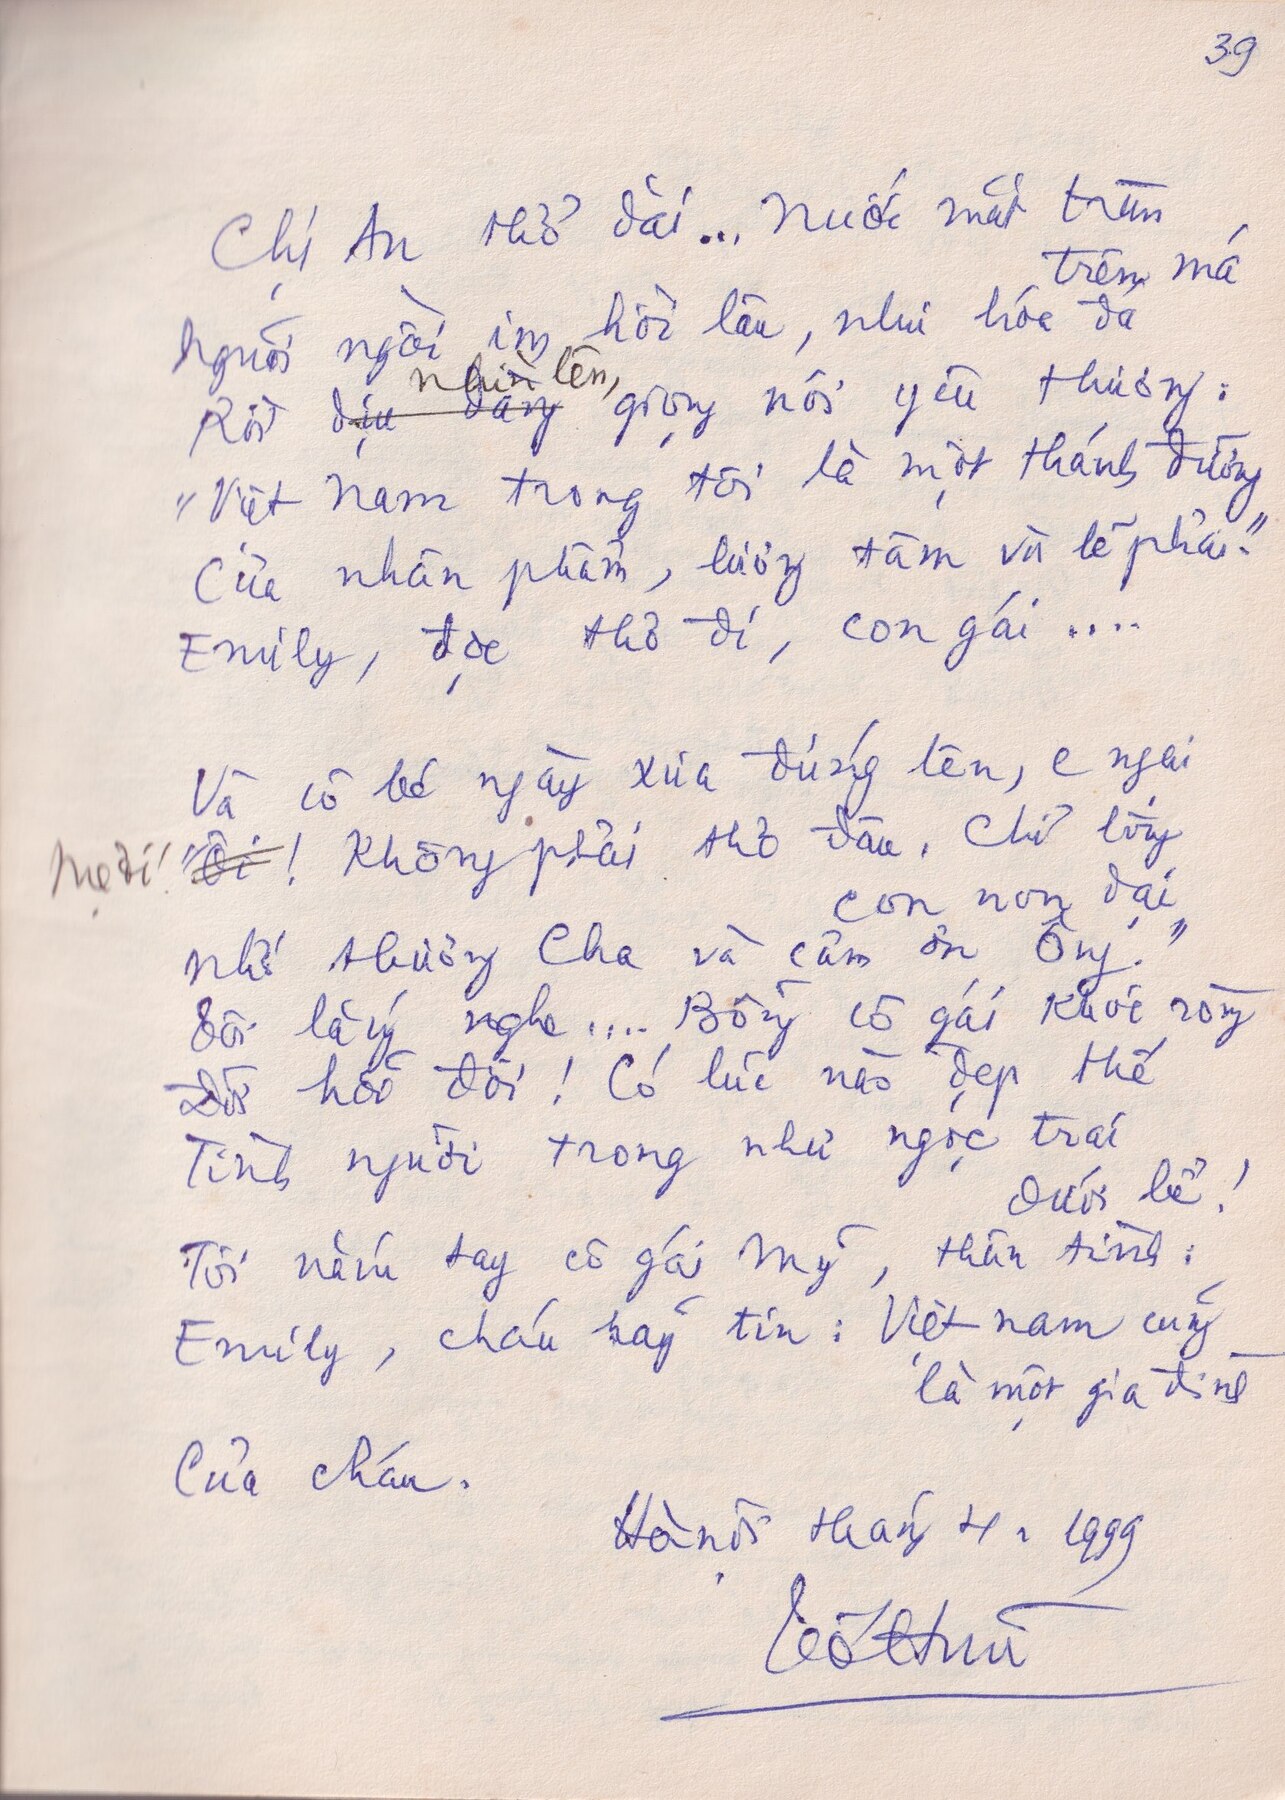 39
Chị An thở dài... Nước mắt tràn
trên má
Người ngồi im hồi lâu, như hóa đá
nhìn lên,
Rồi dịu dàng giọng nói yêu thương:
"Việt Nam trong tôi là một thánh đường
Của nhân phẩm, lương tâm và lẽ phải."
Emily, đọc thơ đi, con gái ....
Và cô bé ngày xưa đứng lên, e ngại
Mẹ ơi! "Ôi! Không phải thơ đâu. Chỉ lòng
con non dại
nhớ thương Cha và cảm ơn Ông."
Tôi lặng nghe .... Bỗng cô gái khóc ròng
Đời hỡi đời! Có lúc nào đẹp thế
Tình người trong như ngọc trai
dưới bể!
Tôi nắm tay cô gái Mỹ, thân tình:
Emily, cháu hãy tin: Việt nam cũng
là một gia đình
Của cháu.
Hà nội tháng 4. 1999
Tố Hữu